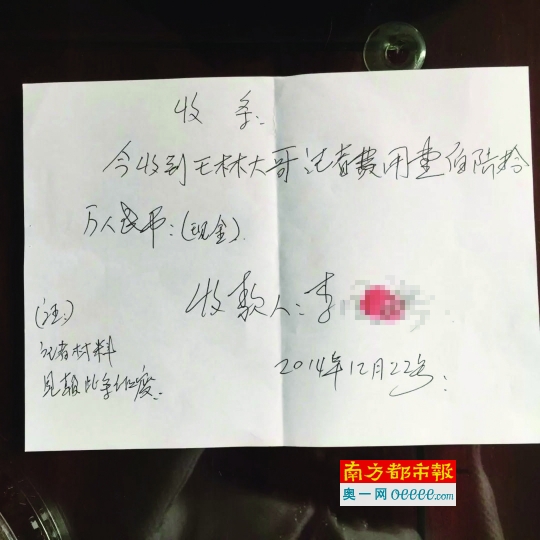 收条:
今收到王林大哥记者费用壹佰陆拾
万人民币:(现金).
收款人:李
(注:)
记者材料
见报此条作废.
2014年12月22号:
南方都市報
奥一网 oeeee.com